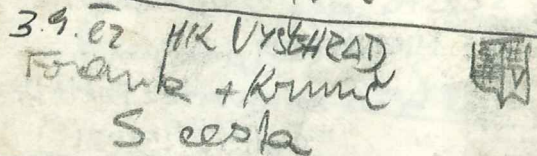 3.9. čz HK VYŠEHRAD
Frank + Krumič
S cesta